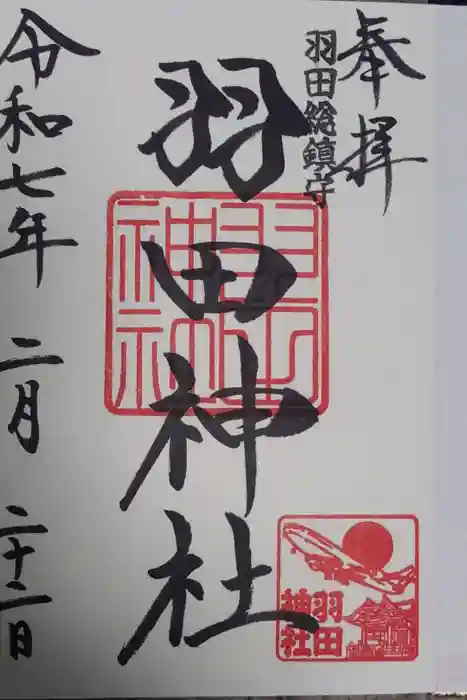 奉拝
羽田総鎮守
羽田神社
羽田神社
羽田
神社
令和七年 二月 二十二日